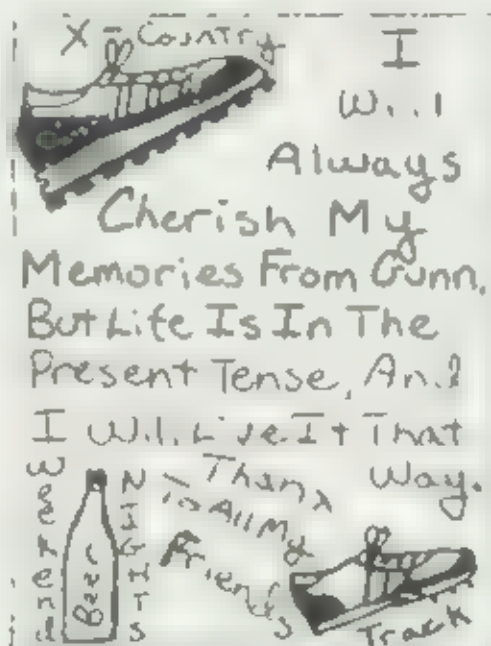 X-Country
I
Will
Always
Cherish My
Memories From Gunn,
But Life Is In The
Present Tense, And
I Will Live It That
Way.
Weekend
Beer
NIGHTS
Thanx
To All My
Friends
Track